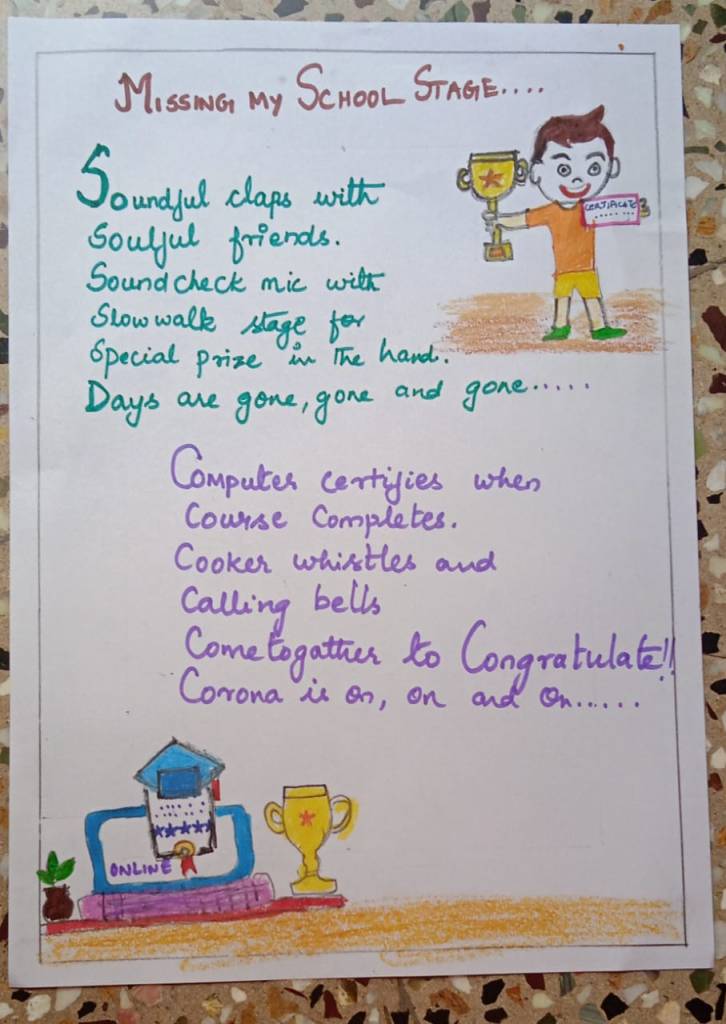 Missing my School Stage....
Soundful claps with
Soulful friends.
Soundcheck mic with
Slow walk stage for
Special prize in the hand.
Days are gone, gone and gone.....
CERTIFICATE
Computer certifies when
Course Completes.
Cooker whistles and
Calling bells
Cometogather to Congratulate!!
Corona is on, on and on.....
ONLINE